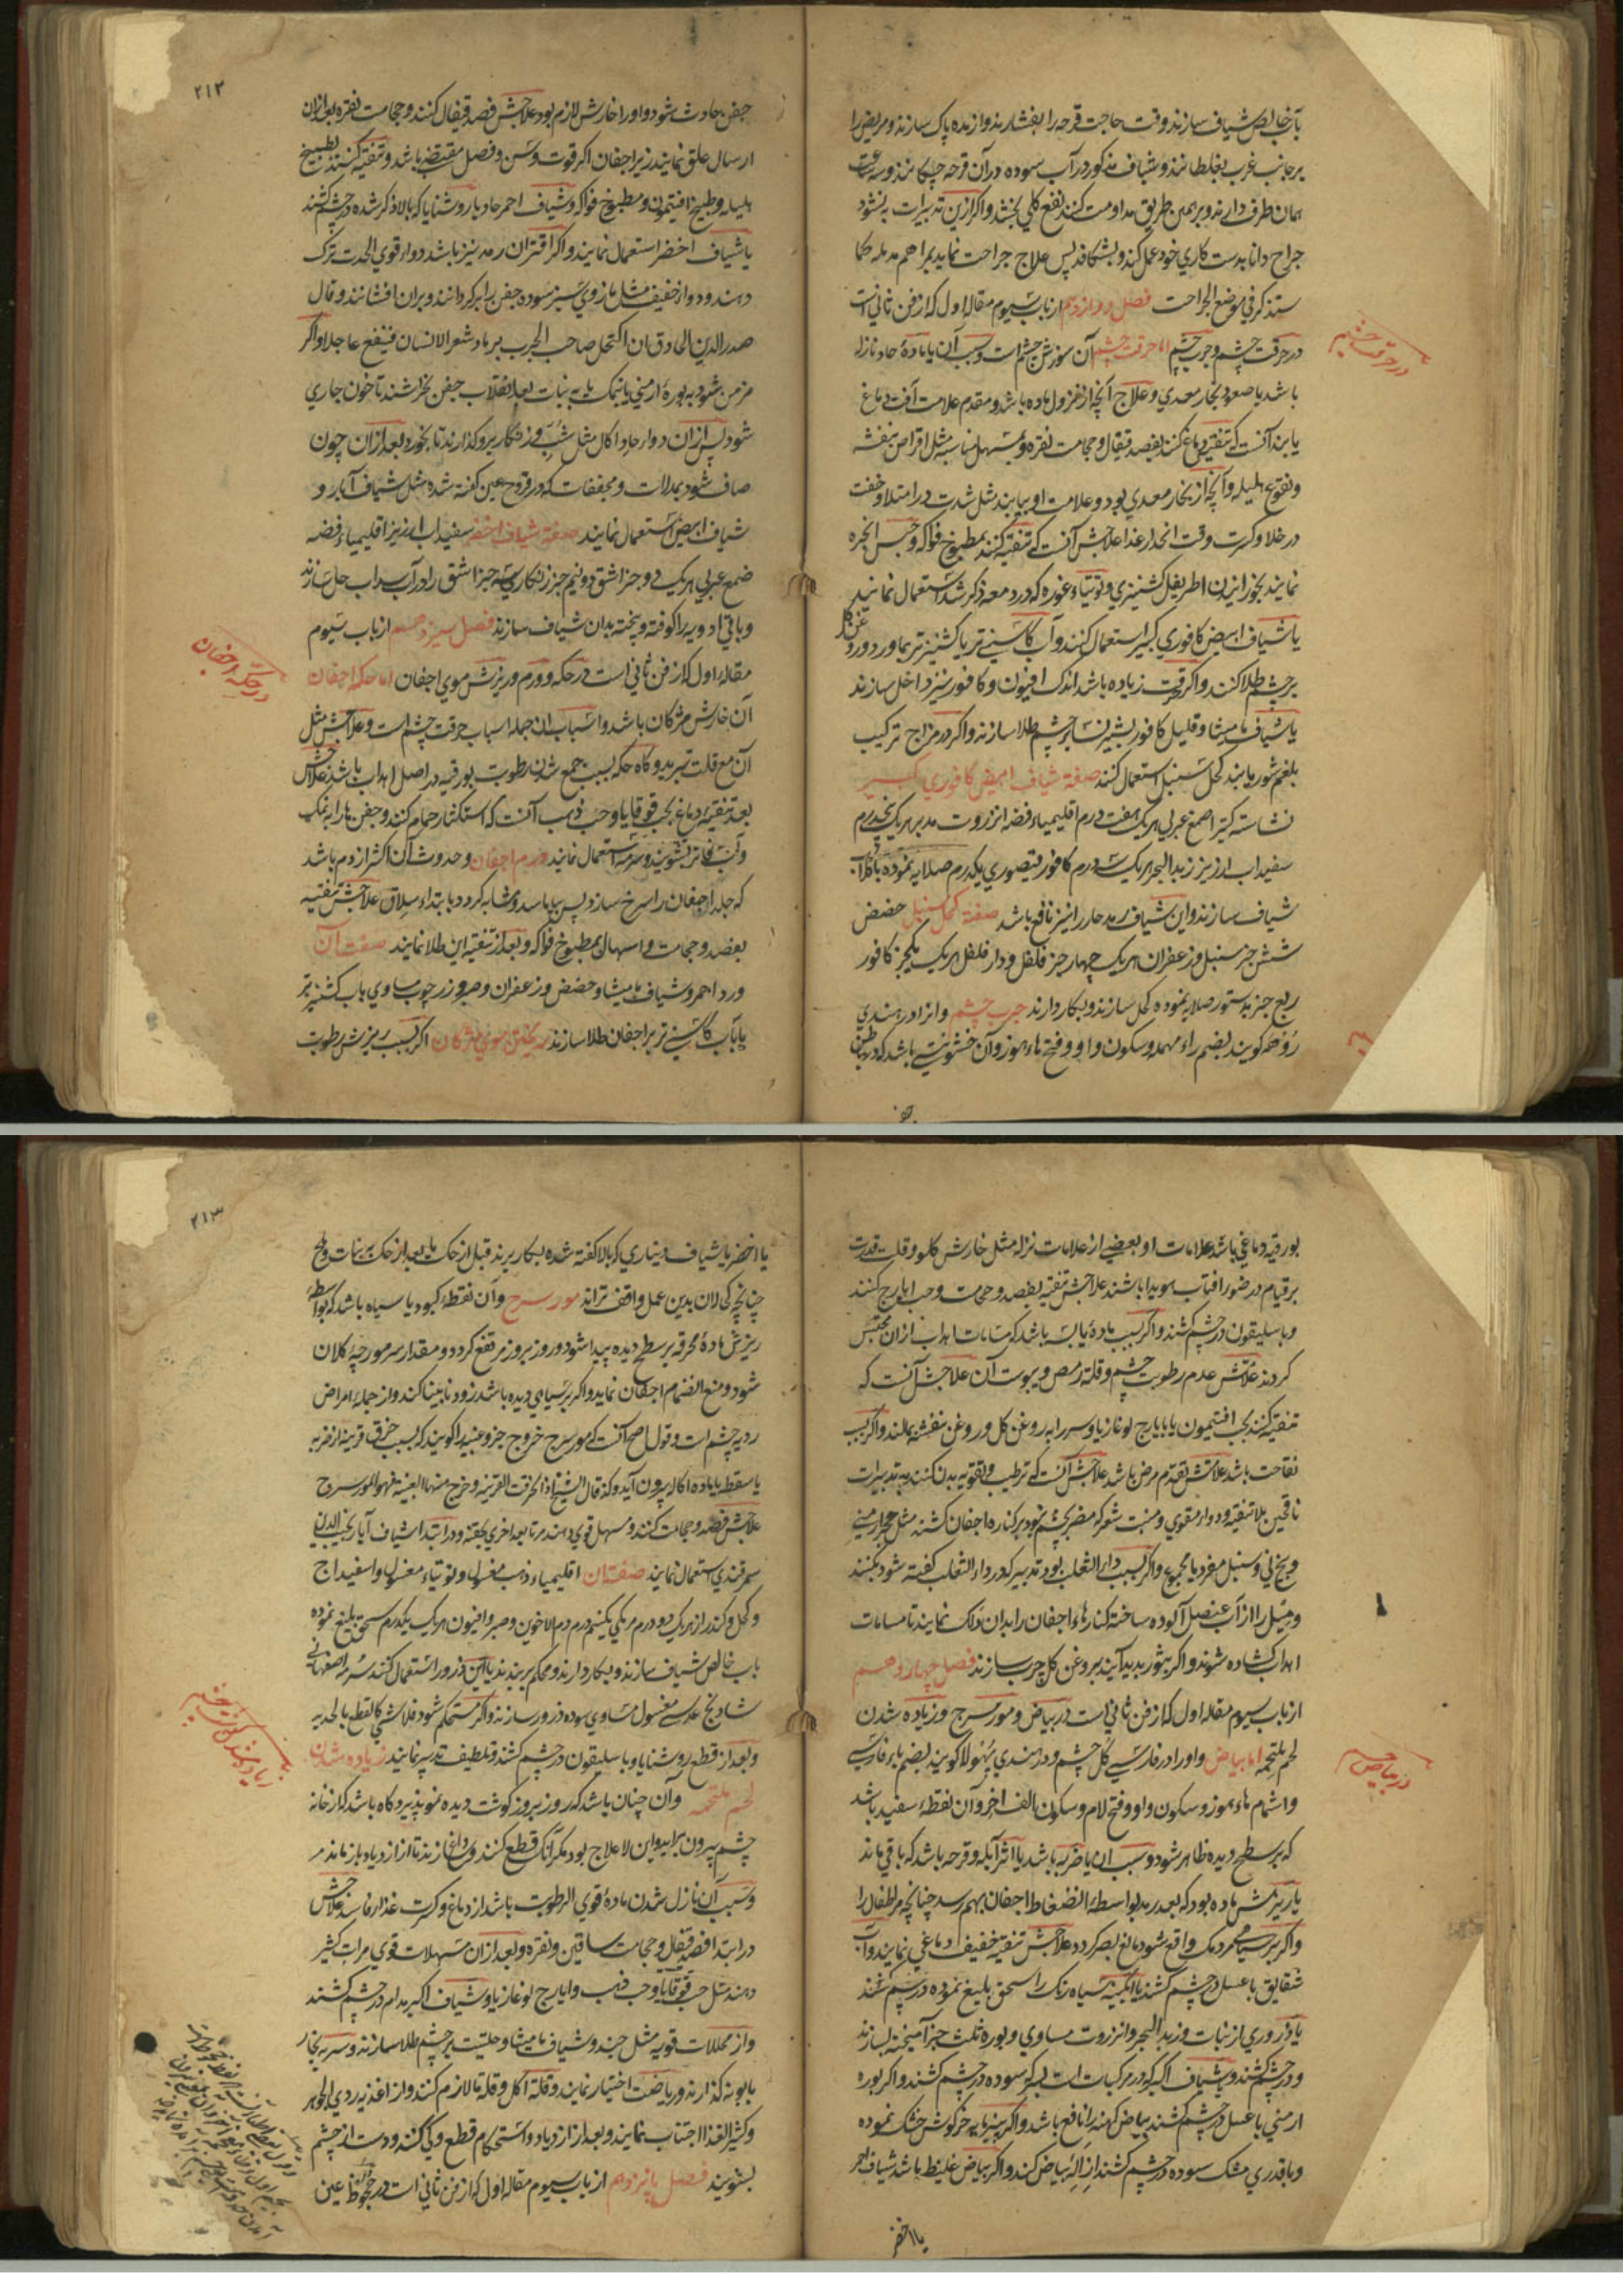 بآب خالص شیاف سازند وقت حاجت قرحه را بفشارند و از مده پاک سازند و مریض را
بر جانب غرب بغلطانند و شیاف مذکور در آب سوده در آن قرحه چکانند و سه ساعت
همان طرف دارند و بر همین طریق مداومت کنند نفع کلی بخشد و اگر ازین تدبیرات به نشود
جراح دانا بدست کاری خود عمل کند و بشکافد پس علاج جراحت نماید بمراهم مدمله کما
ستذکر فی موضع الجراحت فصل دوازدهم از باب سیوم مقاله اول که از فن ثانی است
در حرقت چشم و جرب چشم اما حرقت چشم آن سوزش چشم است و سبب آن یا ماده حاد نازله
در حرقت چشم
باشد یا صعود بخار معدی و علاج آنچه از نزول ماده باشد و مقدم علامت آفت دماغ
یابند آنست که تنقیه دماغ کنند بفصد قیفال و حجامت نقره و بمسهل مناسبه مثل اقراص بنفشه
و نقوع هلیله و آنچه از بخار معدی بود و علامت او بیابند مثل شدت در امتلا و خفت
در خلا و کثرت وقت انحدار غذا علاجش آنست که تنقیه کنند بمطبوخ فواکه و حبس ابخره
نمایند بخورانیدن اطریفل کشنیزی و توتیاء غوره که در دمعه ذکر شد استعمال نمایند
یا شیاف ابیض کافوری کبیر استعمال کنند و آب کاسنی تر یا کشنیز تر بماورد
بر چشم طلا کنند و اگر حرقت زیاده باشد اندک افیون و کافور نیز داخل سازند
یا شیاف مامیثا و قلیل کافور بشیر نسا بر چشم طلا سازند و اگر در مزاج ترکیب
بلغم شور یابند کحل سنبل استعمال کنند صفة شیاف ابیض کافوری کبیر
نشاسته کتیرا صمغ عربی هر یک هفت درم اقلیمیاء فضه انزروت مدبر هر یک پنجدرم
سفیداب ارزیز زبد البحر هر یک سه درم کافور قیصوری یکدرم صلایه نموده بآب
شیاف سازند و این شیاف رمد حار را نیز نافع باشد صفة کحل سنبل حضض
شش جز سنبل و زعفران هر یک چهار جز فلفل و دار فلفل هر یک یکجز کافور
ربع جز بدستور صلایه نموده کحل سازند و بکار دارند جرب چشم و انرا در هندی
گویند بضم راء مهمله و سکون واو و فتح هاء هوز و آن خشونتی باشد که در باطن
جفن
۲۱۲
جفن حادث شود و اورا خارش لازم بود علاجش فصد قیفال کنند و حجامت نقره بعد ازان
ارسال علق نمایند زیر اجفان اگر قوت و سن و فصل مقتضی باشد و تنقیه کنند بطبیخ
هلیله و طبیخ افتیمون و مطبوخ فواکه و شیاف احمر حاد یا روشنایا که بالا ذکر شده در چشم کشند
یا شیاف اخضر استعمال نمایند و اگر اقتران رمد نیز باشد دواء قوی الحدت ترک
دهند و دواء خفیف مثل مازوی سبز سوده جفن برابر کردانند و بران افشانند و قال
صدر الدین الحاذق ان اکتحل صاحب الجرب برماد شعر الانسان فینفع عاجلا و اگر
مزمن شود به بوره ارمنی یا نمک یا به نبات بعد انقلاب جفن بخراشند تا خون جاری
شود پس ازان دواء حاد اکال مثل شب و زنگار برو گذارند تا بخورد بعد ازان چون
صاف شود بمدملات و مجففات که در قروح عین گفته شده مثل شیاف آبار و
شیاف ابیض استعمال نمایند صفة شیاف اخضر سفیداب ارزیز اقلیمیاء فضه
صمغ عربی هر یک جز اشق دو نیم جز زنگاری جز اشق را در آب سداب حل سازند
و باقی ادویه را کوفته و بیخته بدان شیاف سازند فصل سیزدهم از باب سیوم
مقاله اول که از فن ثانی است در حکه و ورم و ریزش موی اجفان اما حکه اجفان
در حکه اجفان
آن خارش مژگان باشد و اسباب ان جمله اسباب حرقت چشم است و علاجش مثل
آن مع قلت تبرید و گاه حکه بسبب جمع شدن رطوبت بورقیه در اصل اهداب باشد علاجش
بعد تنقیه دماغ بحب قوقایا و حب ذهب آنست که استکثار حمام کنند و جفن ها را به نمک
و آب فاتر بشویند و سرمه استعمال نمایند ورم اجفان و حدوث آن اکثر از دم باشد
که جلد اجفان را سرخ سازد پس بیاماسد و مشابه گردد بابتداء سلاق علاجش تنقیه
بفصد و حجامت و اسهال بمطبوخ فواکه و بعد از تنقیه این طلا نمایند صفت آن
ورد احمر و شیاف مامیثا و حضض و زعفران و صبر و زرچوب مساوی بآب کشنیز تر
یا بآب کاسنی تر بر اجفان طلا سازند ریختن موی مژگان اگر بسبب ریزش رطوبت
بورقیه دماغی باشد علامات او بعضی از علامات نزله مثل خارش گلو و قلت قدرت
بر قیام در ضوء افتاب هویدا باشند علاجش تنقیه بفصد و حجامت و حب ایارج کنند
و باسلیقون در چشم کشند و اگر بسبب ماده یابسه باشد که مسامات اهداب ازان محتبس
گردند علامتش عدم رطوبت چشم و قلت رمص و یبوست آن علاجش آنست که
تنقیه کنند بحب افتیمون یا بایارج لوغازیا و سر را به روغن گل و روغن بنفشه بمالند و اگر بسبب
نقاحت باشد علامتش تقدم مرض باشد علاجش آنست که ترطیب و تقویه بدن کنند به تدبیرات
ناقهین بلا تنقیه و دواء مقوی و منبت شعر که مضر بچشم نبود بر کناره اجفان کشند مثل حجر ارمنی
و بیخ نی و سنبل مفرد یا مجموع و اگر بسبب داء الثعلب بود تدبیر که در داء الثعلب گفته شود بکنند
و میل را از آب عنصل آلوده ساخته کنارهاء اجفان را بدان ذلک نمایند تا مسامات
اهداب گشاده شوند و اگر بثور پدید آیند بروغن گل چرب سازند فصل چهاردهم
از باب سیوم مقاله اول که از فن ثانی است در بیاض و مورسرج و زیاده شدن
لحم ملتحمه اما بیاض و اورا در فارسی گل چشم و در هندی پهولا گویند بضم باء فارسی
در بیاض
و اشمام هاء هوز و سکون واو و فتح لام و سکون الف اخر و آن نقطه سفید باشد
که بر سطح دیده ظاهر شود و سبب ان یا ضربه باشد یا اثر آبله و قرحه باشد که باقی ماند
یا ریزش ماده بود که بعد رمد بواسطه انضغاط اجفان بهم رسد چنانچه مر اطفال را
و اگر بر سیاهی مردمک واقع شود مانع بصر گردد علاجش تنقیه خفیف دماغی نمایند و آب
شقایق با عسل در چشم کشند یا آبگینه سیاه رنگ را سحق بلیغ نموده در چشم کشند
یا ذروری از نبات و زبد البحر و انزروت مساوی و بوره ثلث جز آمیخته بسازند
و در چشم کشند و شیاف اکبر که در مرکبات است بسرکه سوده در چشم کشند و اگر بوره
ارمنی با عسل در چشم کشند بیاض کهنه را نافع باشد و اگر پنیر مایه خرگوش خشک نموده
و با قدری مشک سوده در چشم کشند ازاله بیاض کند و اگر بیاض غلیظ باشد شیاف احمر
یا اخضر
۲۱۳
یا اخضر یا شیاف دیناری که بالا گفته شده بکار برند قبل از حک یا بعد از حک به نبات و ملح
چنانچه کحالان بدین عمل واقف تراند مورسرج و آن نقطه کبود یا سیاه باشد که بواسطه
ریزش ماده محرقه بر سطح دیده پیدا شود و روز بروز مرتفع گردد و مقدار سر مورچه کلان
شود و منع انضمام اجفان نماید و اگر بر سیاهی دیده باشد زود نابینا کند و از جمله امراض
ردیه چشم است و قول اصح آنست که مورسرج خروج جزو عنبیه را گویند که بسبب خرق قرنیه از ضربه
یا سقطه یا ماده اکاله بیرون آید و کذا قال الشیخ اذا انخرقت القرنیه و خرج منها العنبیه فهو المورسرج
علاجش فصد و حجامت کنند و مسهل قوی دهند مرتا بعد اخری بحقنه و در ابتدا شیاف آبار نجیب الدین
سمرقندی استعمال نمایند صفت ان اقلیمیاء ذهب مغسول و توتیاء مغسول و اسفیداج
و کحل و کندر از هر یک دو درم مر مکی یکنیم درم دم الاخوین و صبر و افیون هر یک یکدرم سحق بلیغ نموده
باب خالص شیاف سازند و بکار دارند و محکم بر بندند یا این ذرور استعمال کنند سرمه اصفهانی
شادنج عدسی مغسول مساوی سوده ذرور سازند و اگر مستحکم شود فلا شی کالقطع بالحدید
و بعد از قطع روشنایا و باسلیقون در چشم کشند و تلطیف تدبیر نمایند زیاده شدن
لحم ملتحمه و آن چنان باشد که روز بروز گوشت دیده نمو پذیرد گاه باشد که از خانه
چشم بیرون براید و این لا علاج بود مگر آنکه قطع کنند و داغ سازند تا از ازدیاد باز ماند
و سبب آن نازل شدن ماده قوی الرطوبت باشد از دماغ و کثرت غذاء فاسد علاجش
در ابتدا فصد قیفال و حجامت ساقین و نقره و بعد ازان مسهلات قوی مرات کثیر
دهند مثل حب قوقایا و حب ذهب و ایارج لوغازیا و شیاف اکبر مدام در چشم کشند
و از محللات قویه مثل جند و شیاف مامیثا و حلتیت بر چشم طلا سازند و سر به بخار
بابونه گذارند و ریاضت اختیار نمایند و قلة اکل و قلة ما لازم کنند و از اغذیه ردی الجوهر
و کثیر الغذا اجتناب نمایند و بعد از ازدیاد و استحکام قطع و کی کنند و دست از چشم
بشویند فصل پانزدهم از باب سیوم مقاله اول که از فن ثانی است در جحوظ عین